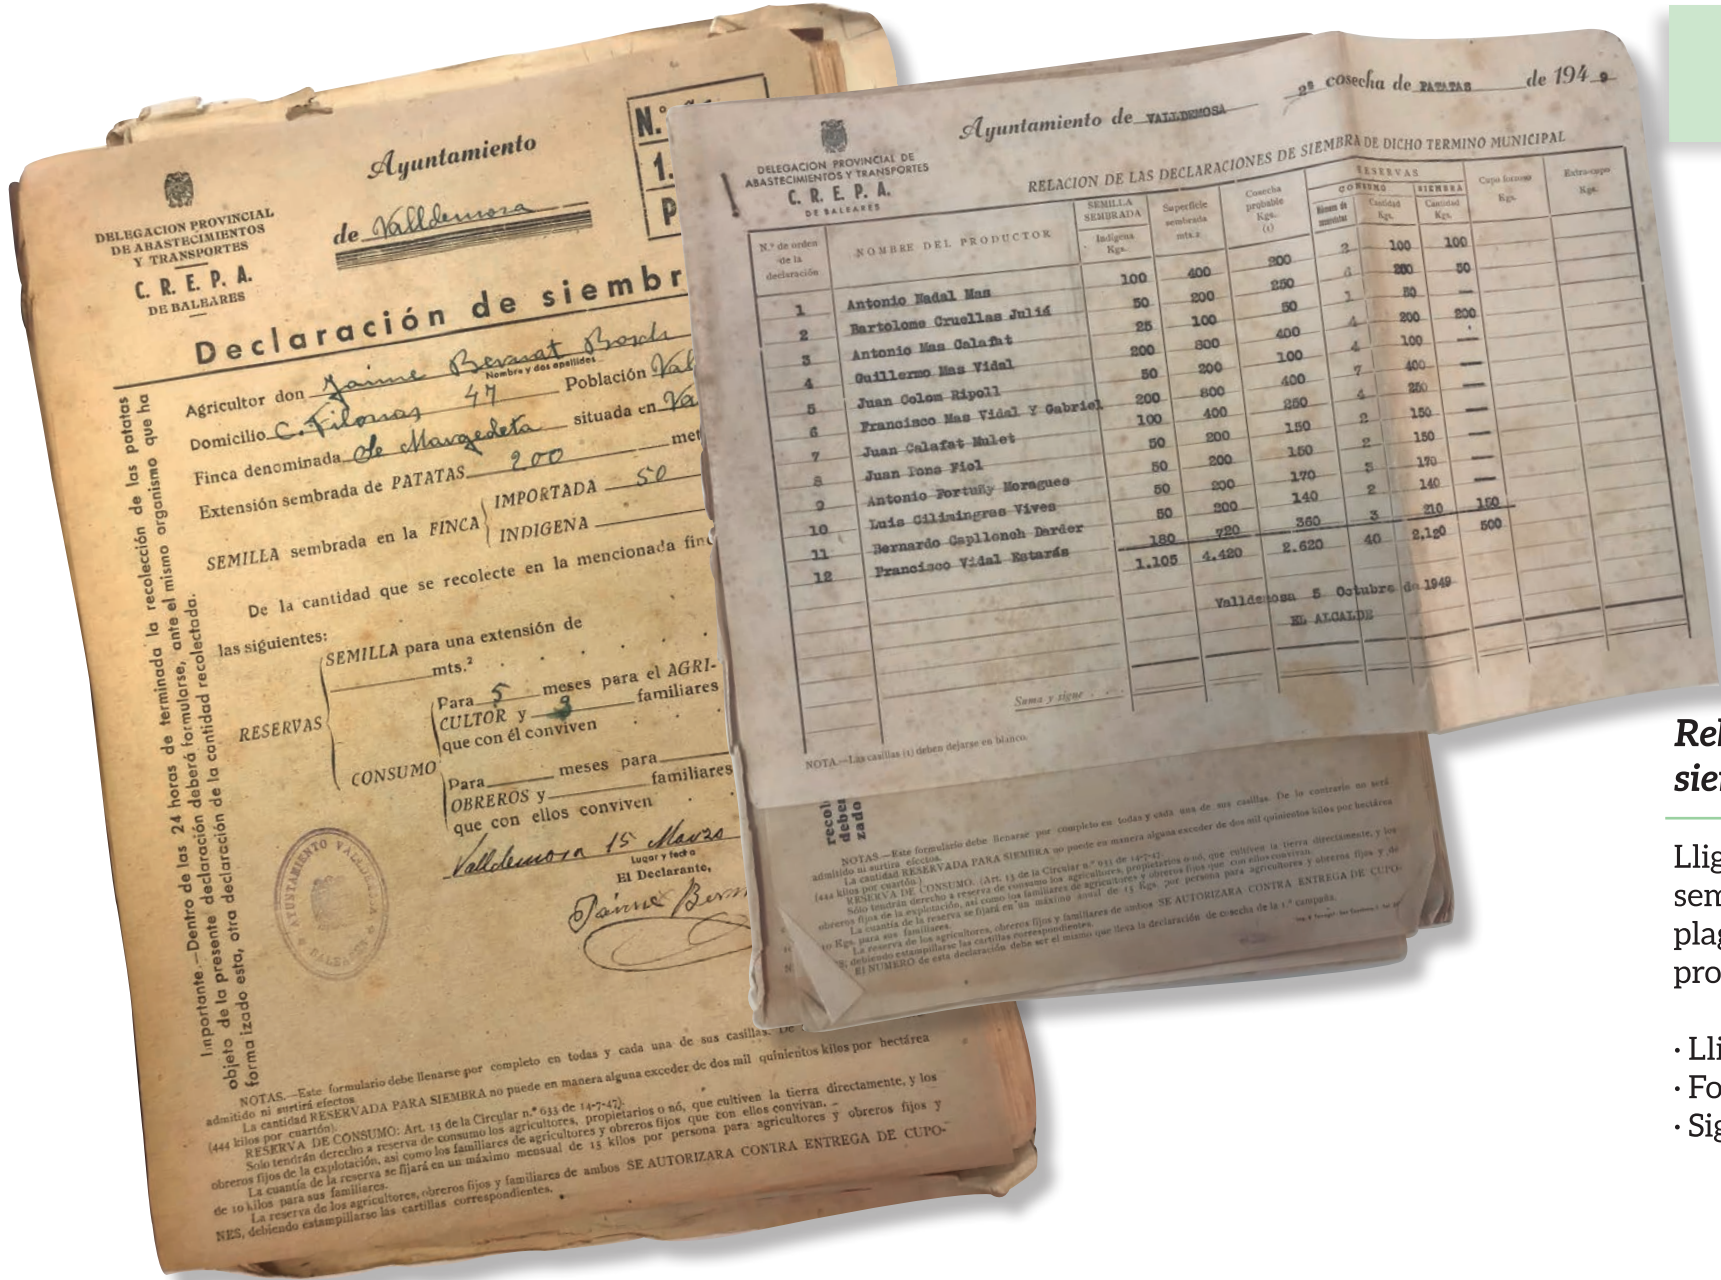 Ayuntamiento
de Valldemosa
N.º
1.
P
DELEGACION PROVINCIAL
DE ABASTECIMIENTOS
Y TRANSPORTES
C. R. E. P. A.
DE BALEARES
Declaración de siembr
Agricultor don Jaime Bernat Bosch
Nombre y dos apellidos
Domicilio C. Filomas 47 Población Val
Finca denominada de Margedeta situada en Va
Extensión sembrada de PATATAS 200 met
SEMILLA sembrada en la FINCA
IMPORTADA 50
INDIGENA
De la cantidad que se recolecte en la mencionada finc
las siguientes:
RESERVAS
SEMILLA para una extensión de
mts.²
CONSUMO
Para 5 meses para el AGRI-
CULTOR y 3 familiares
que con él conviven
Para meses para
OBREROS y familiares
que con ellos conviven
Valldemosa 15 Marzo
Lugar y fecha
El Declarante,
Jaime Bern
AYUNTAMIENTO VALLDEMOSA
BALEARES
Importante.—Dentro de las 24 horas de terminada la recolección de las patatas
objeto de la presente declaración deberá formularse, ante el mismo organismo que ha
forma izado esta, otra declaración de la cantidad recolectada.
NOTAS.—Este formulario debe llenarse por completo en todas y cada una de sus casillas. De
admitido ni surtirá efectos
La cantidad RESERVADA PARA SIEMBRA no puede en manera alguna exceder de dos mil quinientos kilos por hectárea
(444 kilos por cuartón).
RESERVA DE CONSUMO: Art. 13 de la Circular n.º 633 de 14-7-47).
Solo tendrán derecho a reserva de consumo los agricultores, propietarios o nó, que cultiven la tierra directamente, y los
obreros fijos de la explotación, así como los familiares de agricultores y obreros fijos que con ellos convivan.
La cuantía de la reserva se fijará en un máximo mensual de 15 kilos por persona para agricultores y obreros fijos y
de 10 kilos para sus familiares.
La reserva de los agricultores, obreros fijos y familiares de ambos SE AUTORIZARA CONTRA ENTREGA DE CUPO-
NES, debiendo estampillarse las cartillas correspondientes.
DELEGACION PROVINCIAL DE
ABASTECIMIENTOS Y TRANSPORTES
C. R. E. P. A.
DE BALEARES
Ayuntamiento de VALLDEMOSA 2ª cosecha de PATATAS de 1949
RELACION DE LAS DECLARACIONES DE SIEMBRA DE DICHO TERMINO MUNICIPAL
N.º de orden de la declaración
NOMBRE DEL PRODUCTOR
SEMILLA SEMBRADA
Indígena Kgs.
Superficie sembrada mts.2
Cosecha probable Kgs. (1)
RESERVAS
CONSUMO
Cantidad Kgs.
SIEMBRA
Cantidad Kgs.
Cupo forzoso Kgs.
Extra-cupo Kgs.
1 Antonio Nadal Mas 100 400 200 2 100 100
2 Bartolome Cruellas Juliá 50 200 250 200 50
3 Antonio Mas Calafat 25 100 50 1 50 —
4 Guillermo Mas Vidal 200 800 400 4 200 200
5 Juan Colom Ripoll 50 200 100 4 100 —
6 Francisco Mas Vidal Y Gabriel 200 800 400 7 400 —
7 Juan Calafat Mulet 100 400 250 4 250 —
8 Juan Pons Fiol 50 200 150 2 150 —
9 Antonio Fortuñy Moragues 50 200 150 2 150 —
10 Luis Cilimingres Vives 50 200 170 3 170 —
11 Bernardo Capllonch Darder 50 200 140 2 140 —
12 Francisco Vidal Estarás 180 720 360 3 210 150
1.105 4.420 2.620 40 2,120 500
Valldemosa 5 Octubre de 1949
EL ALCALDE
Suma y sigue
NOTA.—Las casillas (1) deben dejarse en blanco.
recol
deber
zado
NOTAS.—Este formulario debe llenarse por completo en todas y cada una de sus casillas. De lo contrario no será
admitido ni surtira efectos.
La cantidad RESERVADA PARA SIEMBRA no puede en manera alguna exceder de dos mil quinientos kilos por hectárea
(444 kilos por cuartón.)
RESERVA DE CONSUMO. (Art. 13 de la Circular n.º 633 de 14-7-47.
Sólo tendrán derecho a reserva de consumo los agricultores, propietarios o nó, que cultiven la tierra directamente, y los
obreros fijos de la explotación, así como los familiares de agricultores y obreros fijos que con ellos convivan.
La cuantía de la reserva se fijará en un máximo anual de 15 Kgs. por persona para agricultores y obreros fijos y de
10 Kgs. para sus familiares.
La reserva de los agricultores, obreros fijos y familiares de ambos SE AUTORIZARA CONTRA ENTREGA DE CUPO-
debiendo estampillarse las cartillas correspondientes.
El NUMERO de esta declaración debe ser el mismo que lleva la declaración de cosecha de la 1.ª campaña.
Rel
sie
Llig
sem
plag
pro
· Lli
· Fo
· Sig